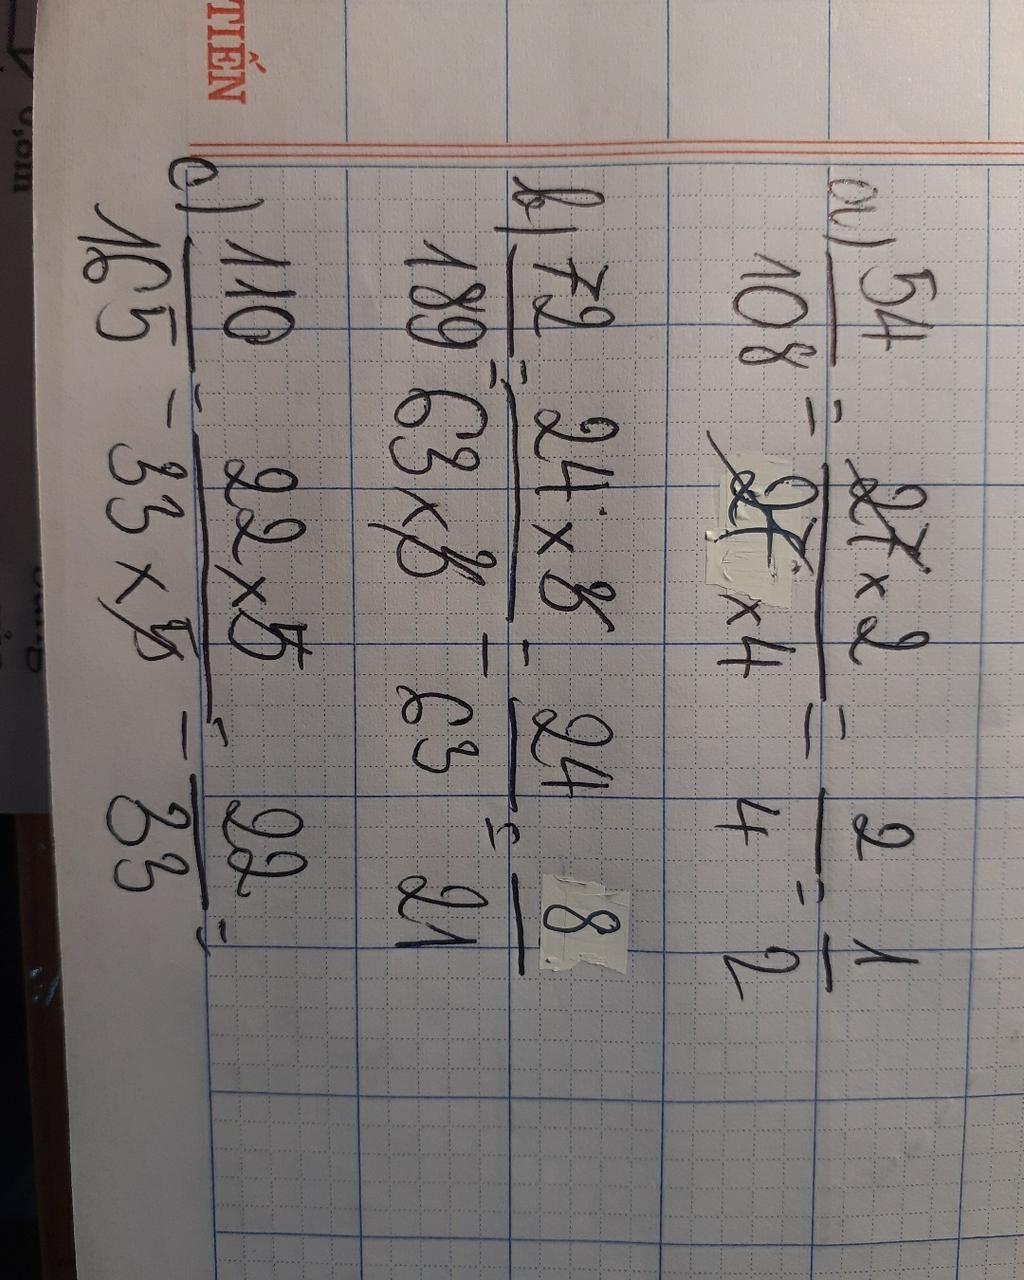 TIẾN
a) 54/108 = 27 x 2/27 x 4 = 2/4 = 1/2
b) 72/189 = 24 x 3/63 x 3 = 24/63 = 8/21
c) 110/165 = 22 x 5/33 x 5 = 22/33 =
0,8m